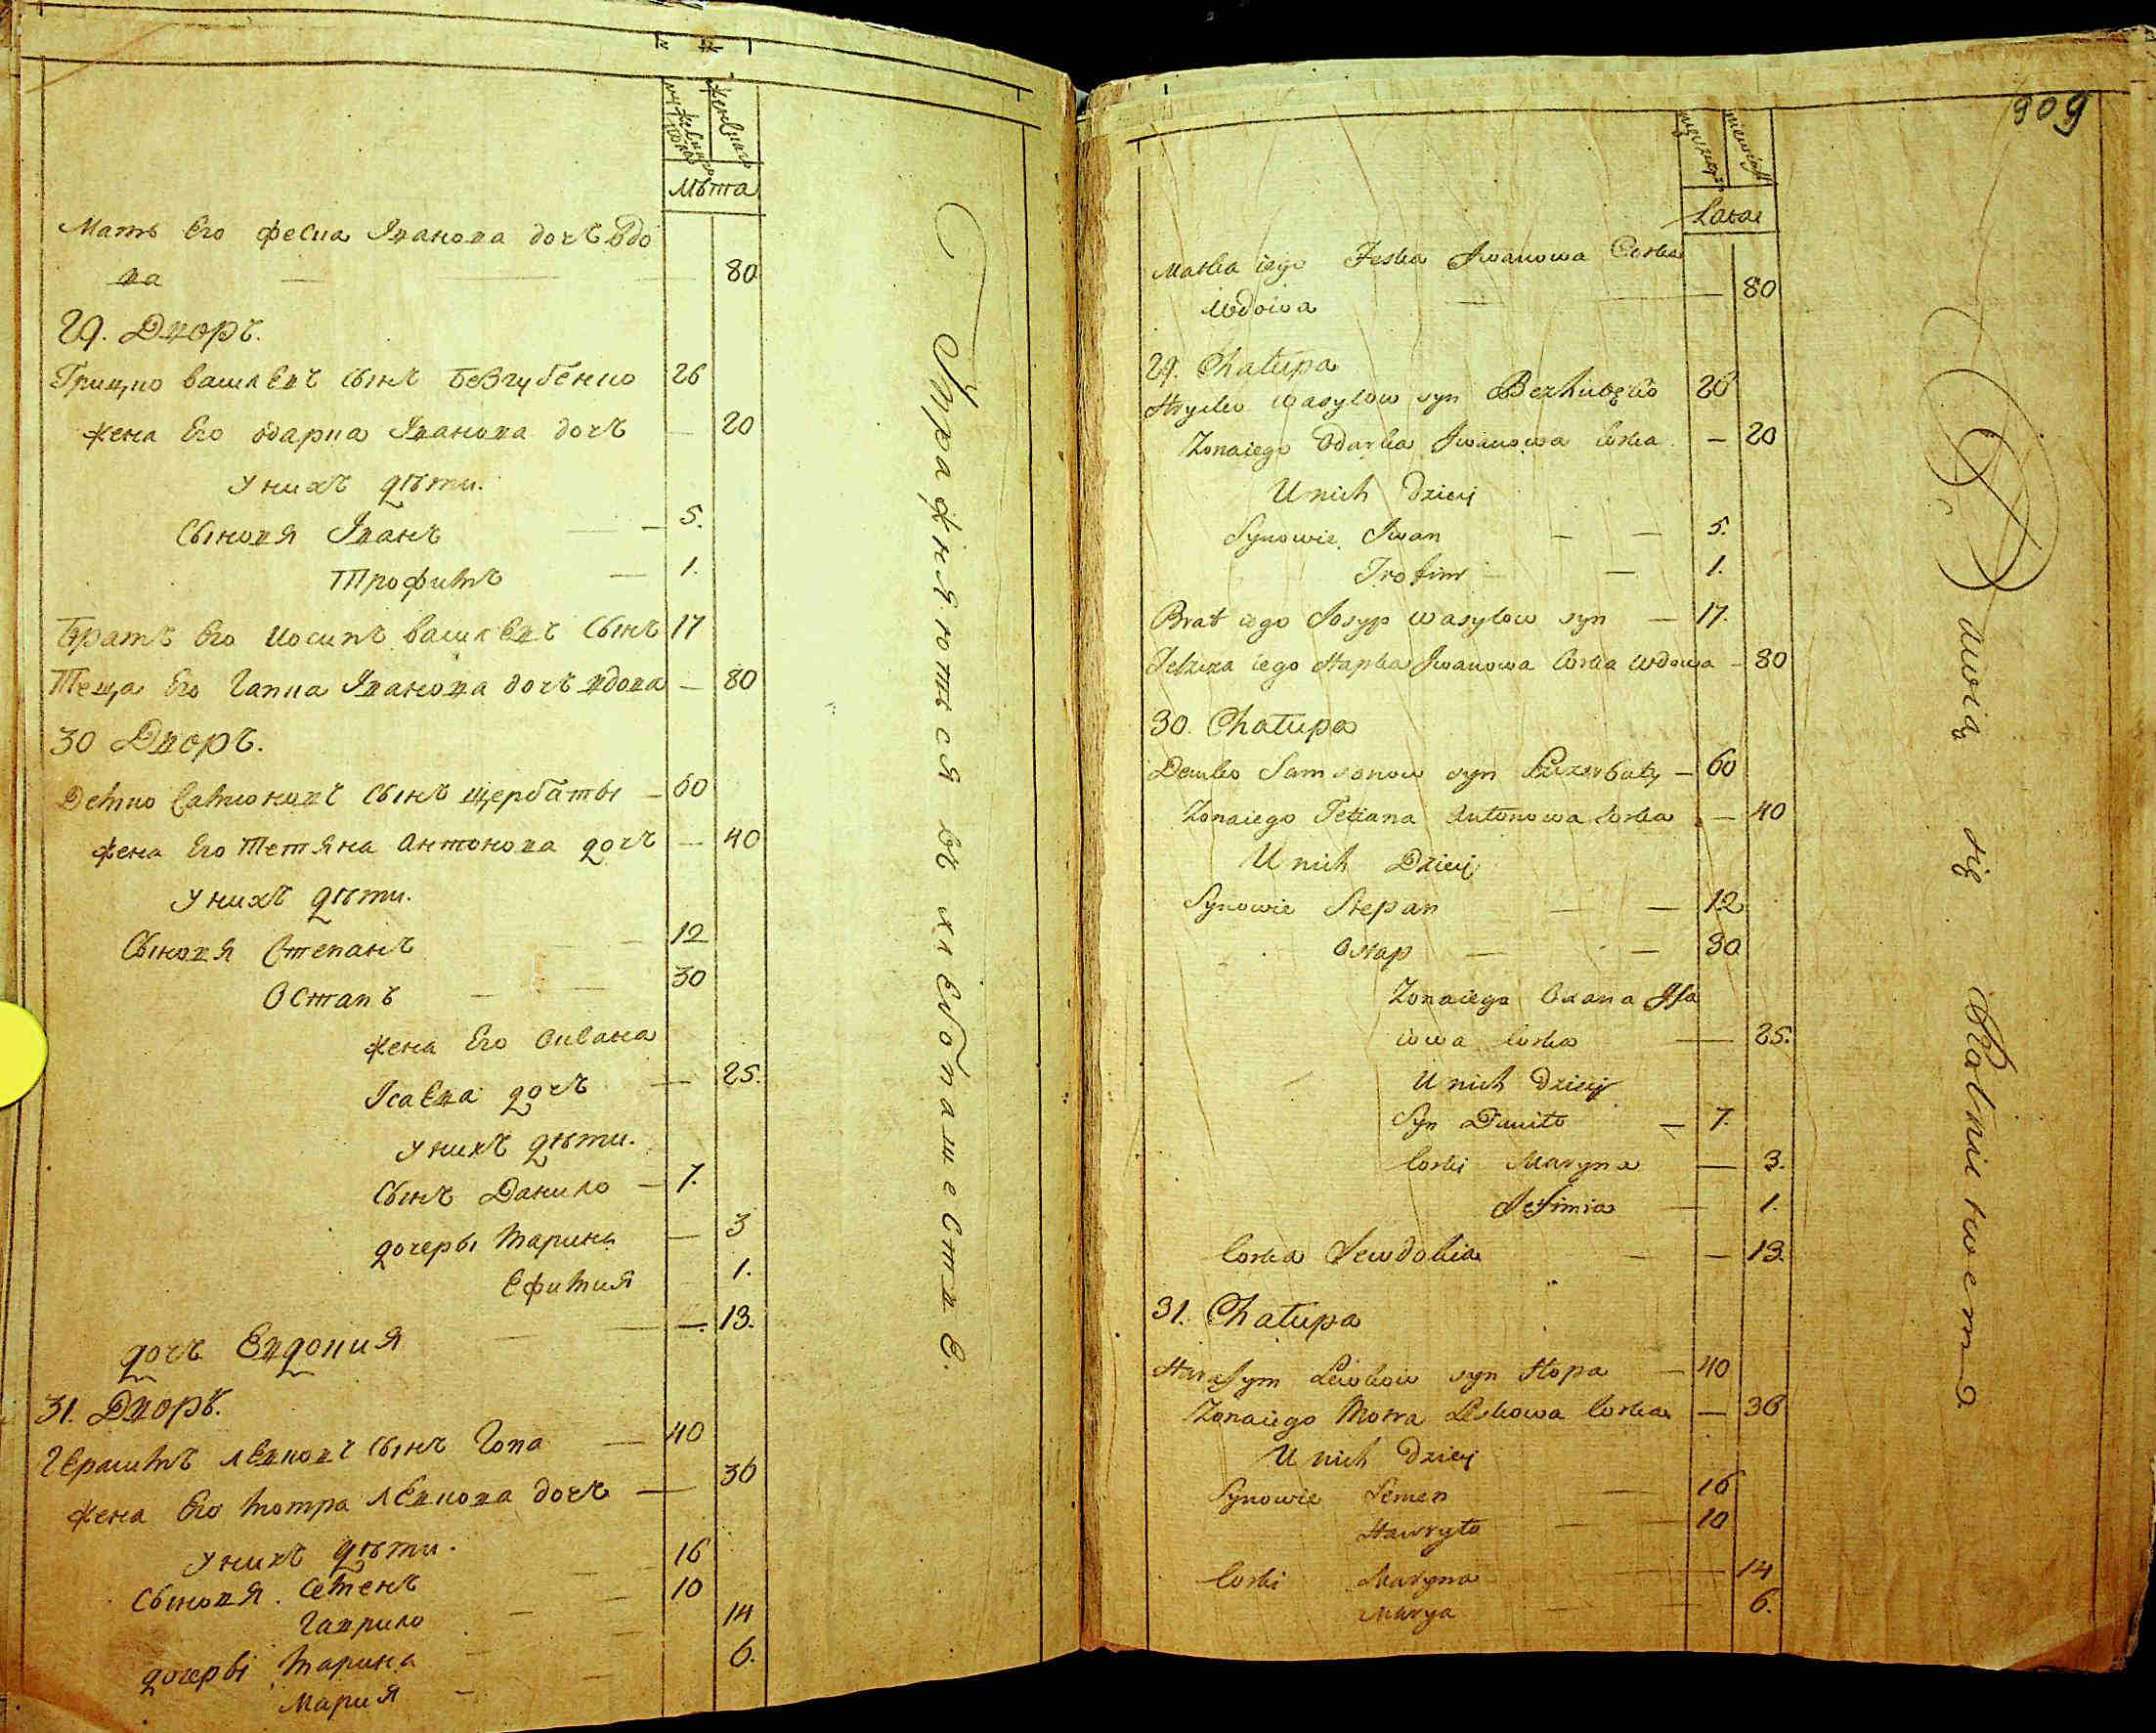 мужеска полу
женска
Лѣта
Мать Его феска Іванова дочъ вдо
ва — — — 80
29. Дворъ.
Грицко василевъ сынъ Безгубенко 26
жена Его одарка Іванова дочъ — 20
У нихъ дѣти.
Сыновя Іванъ — 5.
Трофимъ — 1.
Братъ Его иосипъ василевъ Сынъ 17
Теща Его Гапка Іванова дочъ вдова — 80
30 Дворъ.
Демко Самсоновъ Сынъ щербаты — 60
жена Его Тетяна Антонова дочъ — 40
У нихъ дѣти.
Сыновя Степанъ — 12
Остапъ — — 30
жена Его Оксана
Ісаева дочъ — 25.
У нихъ дѣти.
Сынъ Данило — 7.
дочеры Марина — 3
Ефимия 1.
дочъ Евдокия — — 13.
31. Дворъ.
Герасимъ левковъ сынъ Гопа — 40
жена Его Мотра Левкова дочъ — 36
У нихъ дѣти.
Сыновя. Семенъ — 16
Гаврило — 10
дочеры Марина — 14
Мария — 6.
Упражняються въ хлебопашестве.
909
Lata
Matka iego Feska Jwanowa Corka
Wdowa — — 80
29. Chałupa
Hryćko Wasylow syn Bezhubęko 26
Zonaiego Odarka Jwanowa Corka — 20
U nich Dzieci
Synowie Jwan — — 5.
Trofim — — 1.
Brat iego Josyp Wasylow syn — 17.
Teszcza iego Hapka Jwanowa Corka Wdowa — 80
30. Chałupa
Demko Samsonow syn Szczerbaty — 60
Zonaiego Tetiana Antonowa Corka — 40
U nich Dzieci
Synowie Stepan — — 12
Ostap — — 30
Zonaiego Oxana Jsa
iowa Corka — 25.
U nich Dzieci
Syn Daniło — 7.
Corki Maryna — 3.
Jefimia — 1.
Corka Jewdokia — — 13.
31. Chałupa
Harasym Lewkow syn Hopa — 40
Zonaiego Motra Leskowa Corka — 36
U nich Dzieci
Synowie Semen — 16
Hawryło — — 10
Corki Maryna — 14
Marya — — 6.
się Rolnictwem